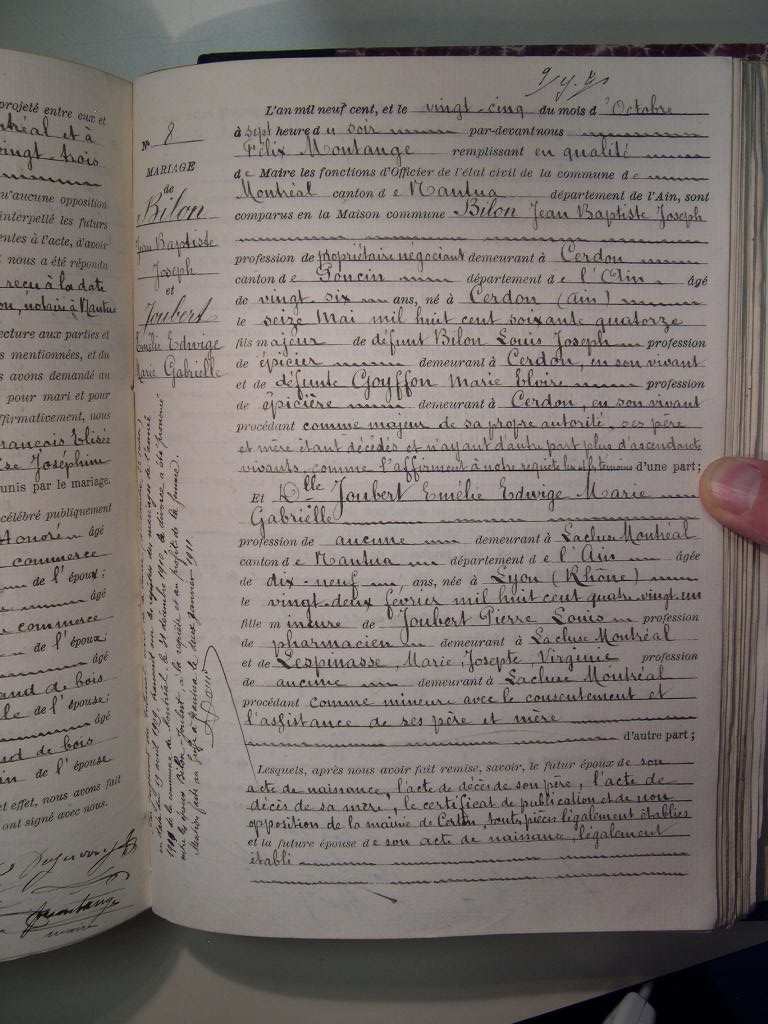 projeté entre eux et
tréal et à
vingt-trois
qu'aucune opposition
interpellé les futurs
entes à l'acte, d'avoir
nous a été répondu
reçu à la date
on, notaire à Nantua
ecture aux parties et
s mentionnées, et du
s avons demandé au
pour mari et pour
ffirmativement, nous
rançois Elisée
se Joséphine
unis par le mariage.
célébré publiquement
Honoré âgé
commerce
de l'époux;
âgé
commerce
de l'époux;
âgé
and de bois
le de l'épouse;
âgé
nd de bois
in de l'épouse
et effet, nous avons fait
ont signé avec nous.
Montange
maire
N° 8
MARIAGE
de
Bilon
Jean Baptiste
Joseph
et
Joubert
Emélie Edwige
Marie Gabrielle
L'an mil neuf cent, et le vingt-cinq du mois d'Octobre
à sept heure du soir par-devant nous
Félix Montange remplissant en qualité
de Maire les fonctions d'Officier de l'état civil de la commune de
Montréal canton de Nantua département de l'Ain, sont
comparus en la Maison commune Bilon Jean Baptiste Joseph
profession de propriétaire négociant demeurant à Cerdon
canton de Poncin département de l'Ain âgé
de vingt six ans, né à Cerdon (Ain)
le seize Mai mil huit cent soixante quatorze
fils majeur de défunt Bilon Louis Joseph profession
de épicier demeurant à Cerdon, en son vivant
et de défunte Goyffon Marie Eloire profession
de épicière demeurant à Cerdon, en son vivant
procédant comme majeur de sa propre autorité, ses père
et mère étant décédés et n'ayant d'autre part plus d'ascendants
vivants, comme l'affirment à notre requête les témoins d'une part;
Et Dlle Joubert Emélie Edwige Marie
Gabriëlle
profession de aucune demeurant à Lacluse Montréal
canton de Nantua département de l'Ain âgée
de dix-neuf ans, née à Lyon (Rhône)
le vingt-deux février mil huit cent quatre vingt un
fille mineure de Joubert Pierre Louis profession
de pharmacien demeurant à Lacluse Montréal
et de Lespinasse, Marie, Josepte, Virginie profession
de aucune demeurant à Lacluse Montréal
procédant comme mineure avec le consentement et
l'assistance de ses père et mère
d'autre part;
Lesquels, après nous avoir fait remise, savoir, le futur époux de son
acte de naissance, l'acte de décès de son père, l'acte de
décès de sa mère, le certificat de publication et de non
opposition de la mairie de Cerdon, toutes pièces légalement établies
et la future épouse de son acte de naissance légalement
établi
en date du 1909 transcrit sur le registre des mariages de l'année
1910 de la commune de Montréal, le 31 décembre 1910, le divorce a été prononcé
entre les époux Bilon-Joubert à la requête et au profit de la femme.
Mention faite au greffe à Nantua le douze janvier 1911